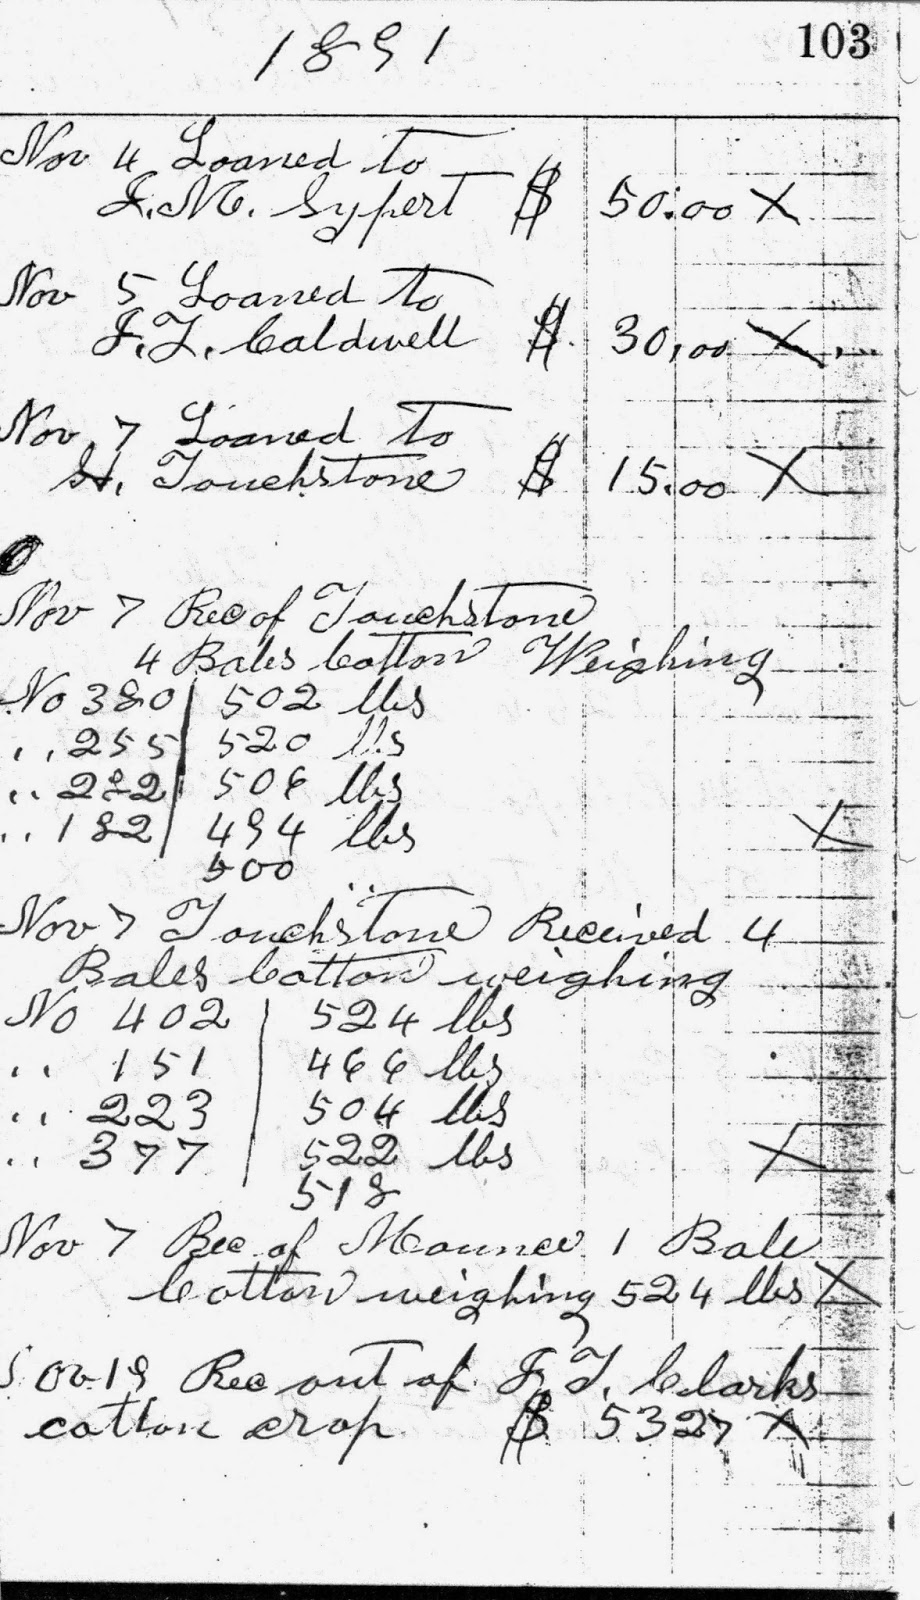 103
1891
Nov 4 Loaned to
J.M. Sypert $ 50.00 X
Nov 5 Loaned to
J.T. Caldwell $ 30.00 X
Nov 7 Loaned to
H. Touchstone $ 15.00 X
Nov 7 Rec of Touchstone
4 Bales Cotton Weighing
No 380 | 502 lbs
,, 255 | 520 lbs
,, 282 | 506 lbs
,, 182 | 494 lbs X
500
Nov 7 Touchstone Received 4
Bales Cotton weighing
No 402 | 524 lbs
,, 151 | 466 lbs
,, 223 | 504 lbs
,, 377 | 522 lbs X
518
Nov 7 Rec of 1 Bale
Cotton weighing 524 lbs X
Nov 19 Rec out of J.T. Clarks
cotton crop $ 5327 X